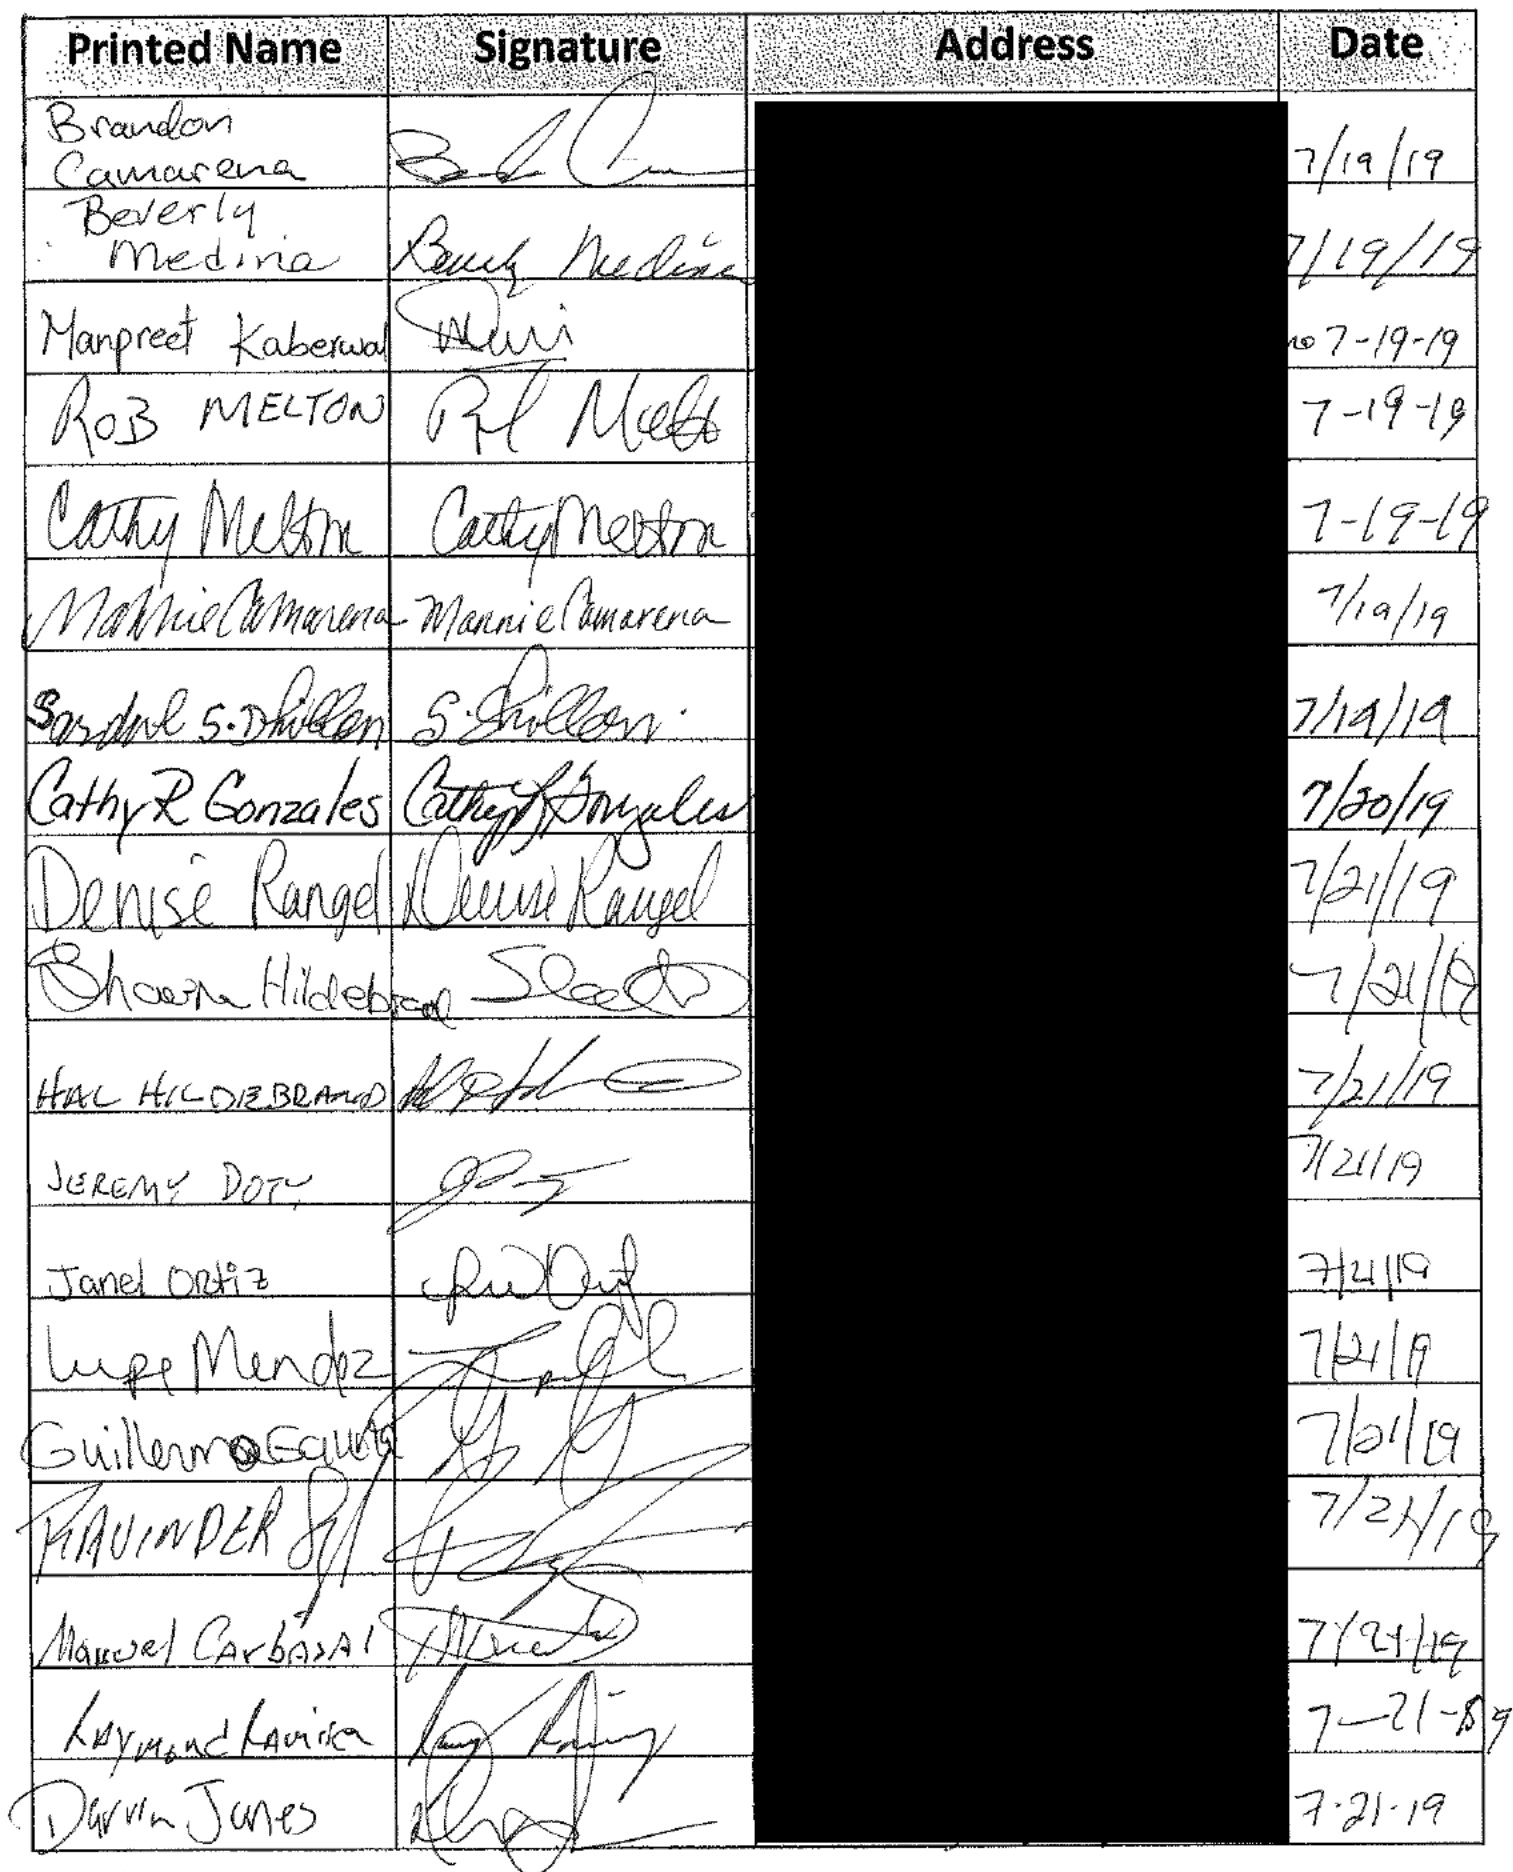 Printed Name Signature Address Date
Brandon
Camarena 7/19/19
Beverly
Medina Beverly Medina 7/19/19
Manpreet Kaberwal 7-19-19
ROB MELTON 7-19-19
Cathy Melton Cathy Melton 7-19-19
Mannie Camarena Mannie Camarena 7/19/19
S. Dhillon S. Dhillon 7/19/19
Cathy R Gonzales Cathy R Gonzales 7/20/19
Denise Rangel Denise Rangel 7/21/19
Shawna Hildebrand 7/21/19
HAL HILDEBRAND 7/21/19
JEREMY DOTY 7/21/19
Janel Ortiz 7/21/19
Lupe Mendoz 7/21/19
Guillermo 7/21/19
RAVINDER 7/21/19
Manuel CArbAjAl 7/21/19
Raymond 7-21-19
Darvin Jones 7-21-19